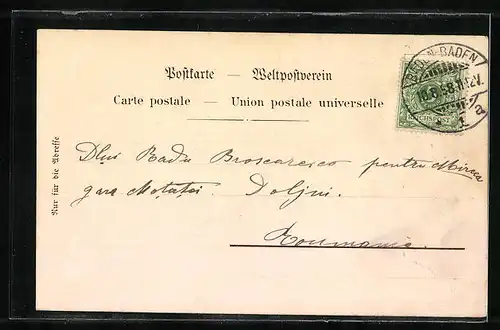 Postkarte — Weltpostverein
Carte postale — Union postale universelle
Nur für die Adresse
BADEN-BADEN
Dlui Radu pentru Mircea
gara Moțăței. Doljiu.
Roumania.